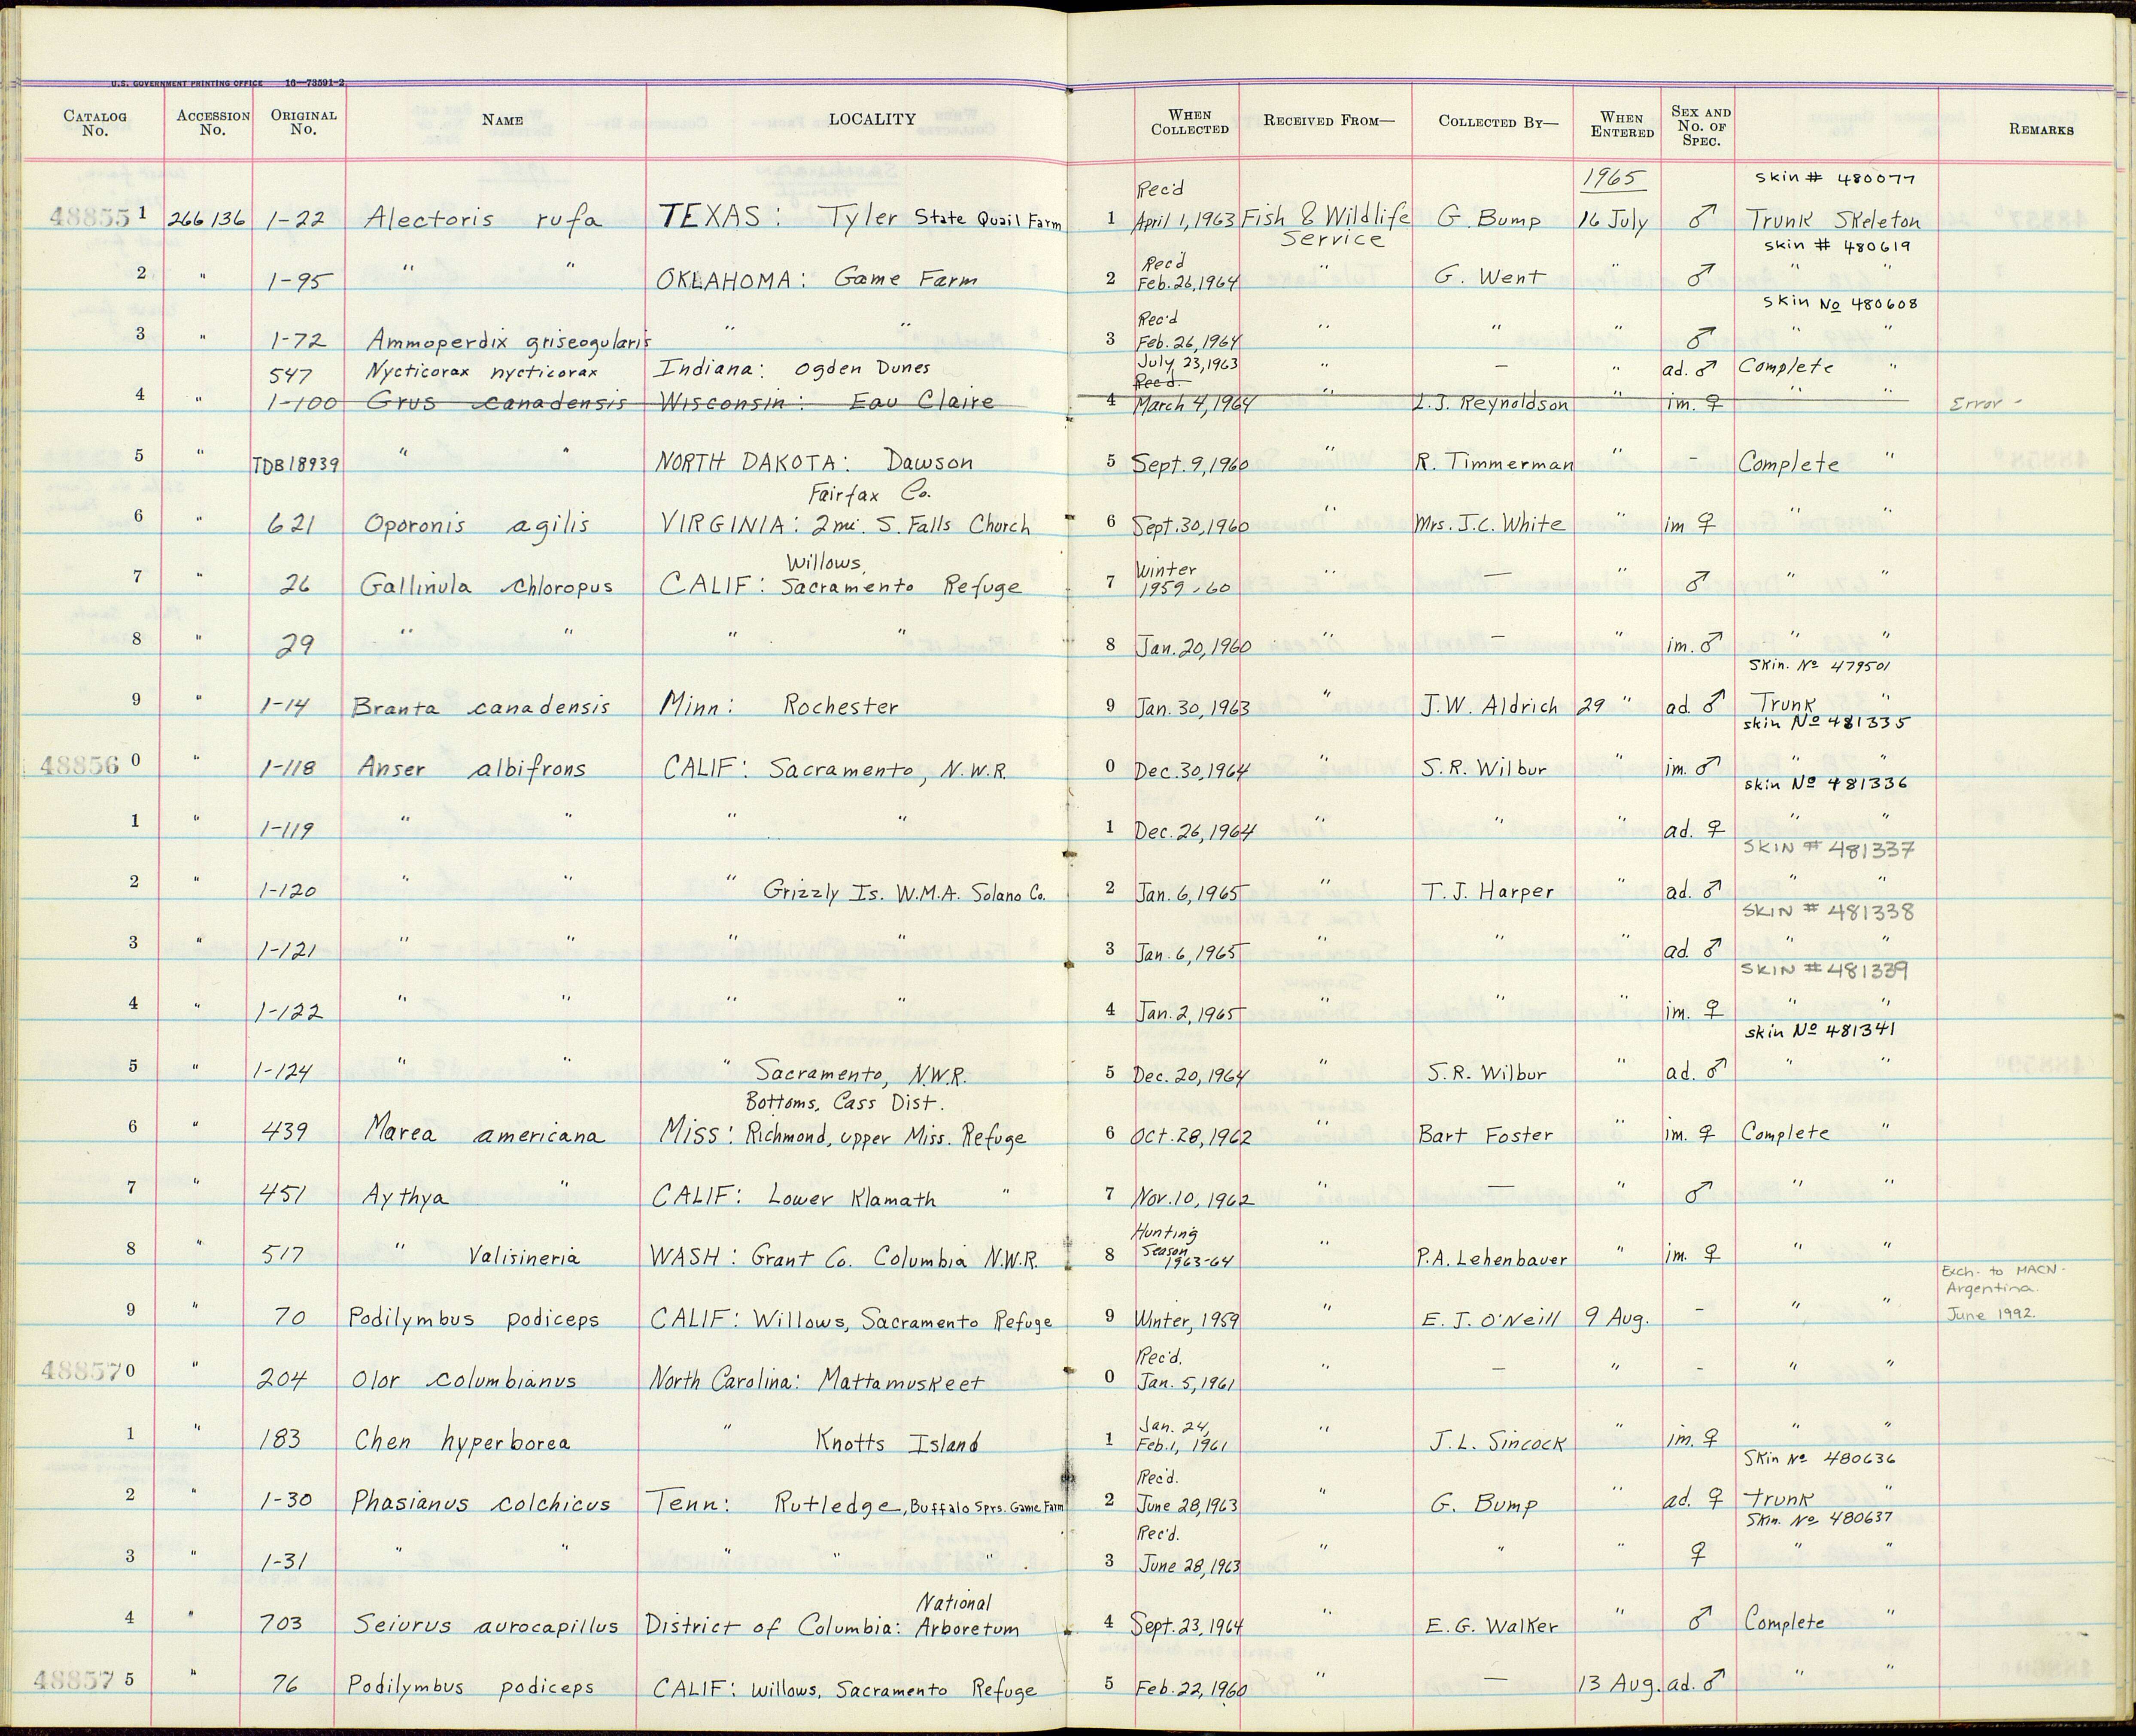 U.S. GOVERNMENT PRINTING OFFICE 16—73591-2
CATALOG No. ACCESSION No. ORIGINAL No. NAME LOCALITY WHEN COLLECTED RECEIVED FROM— COLLECTED BY— WHEN ENTERED SEX AND No. OF SPEC. REMARKS
Rec'd 1965 skin # 480077
48855 1 266136 1-22 Alectoris rufa TEXAS: Tyler State Quail Farm 1 April 1, 1963 Fish & Wildlife Service G. Bump 16 July ♂ Trunk Skeleton
Rec'd skin # 480619
2 " 1-95 " " OKLAHOMA: Game Farm 2 Feb. 26, 1964 " G. Went " ♂ " "
Rec'd skin No 480608
3 " 1-72 Ammoperdix griseogularis " " 3 Feb. 26, 1964 " " " ♂ " "
547 Nycticorax nycticorax Indiana: Ogden Dunes July 23, 1963 " — " ad. ♂ Complete "
Rec'd.
4 " 1-100 Grus canadensis Wisconsin: Eau Claire 4 March 4, 1964 " L.J. Reynoldson " im. ♀ " " Error -
5 " TDB18939 " " NORTH DAKOTA: Dawson 5 Sept. 9, 1960 " R. Timmerman " - Complete "
Fairfax Co.
6 " 621 Oporonis agilis VIRGINIA: 2 mi. S. Falls Church 6 Sept. 30, 1960 " Mrs. J.C. White " im ♀ " "
Willows, Winter
7 " 26 Gallinula chloropus CALIF: Sacramento Refuge 7 1959-60 " — " ♂ " "
8 " 29 " " " " 8 Jan. 20, 1960 " — " im. ♂ " "
Skin. No 479501
9 " 1-14 Branta canadensis Minn: Rochester 9 Jan. 30, 1963 " J.W. Aldrich 29 " ad. ♂ Trunk "
skin No 481335
48856 0 " 1-118 Anser albifrons CALIF: Sacramento, N.W.R. 0 Dec. 30, 1964 " S.R. Wilbur " im. ♂ " "
skin No 481336
1 " 1-119 " " " " 1 Dec. 26, 1964 " " " ad. ♀ " "
SKIN # 481337
2 " 1-120 " " " Grizzly Is. W.M.A. Solano Co. 2 Jan. 6, 1965 " T.J. Harper " ad. ♂ " "
SKIN # 481338
3 " 1-121 " " " " 3 Jan. 6, 1965 " " " ad. ♂ " "
SKIN # 481339
4 " 1-122 " " " " 4 Jan. 2, 1965 " " " im. ♀ " "
skin No 481341
5 " 1-124 " " " Sacramento, N.W.R. 5 Dec. 20, 1964 " S.R. Wilbur " ad. ♂ " "
Bottoms, Cass Dist.
6 " 439 Marea americana Miss: Richmond, upper Miss. Refuge 6 Oct. 28, 1962 " Bart Foster " im. ♀ Complete "
7 " 451 Aythya " CALIF: Lower Klamath " 7 Nov. 10, 1962 " — " ♂ " "
Hunting Season
8 " 517 " Valisineria WASH: Grant Co. Columbia N.W.R. 8 1963-64 " P.A. Lehenbauer " im. ♀ " "
Exch. to MACN - Argentina.
9 " 70 Podilymbus podiceps CALIF: Willows, Sacramento Refuge 9 Winter, 1959 " E. J. O'Neill 9 Aug. - " " June 1992.
Rec'd.
48857 0 " 204 Olor columbianus North Carolina: Mattamuskeet 0 Jan. 5, 1961 " — " - " "
Jan. 24,
1 " 183 Chen hyperborea " Knotts Island 1 Feb. 1, 1961 " J.L. Sincock " im. ♀ " "
Rec'd. Skin No 480636
2 " 1-30 Phasianus colchicus Tenn: Rutledge, Buffalo Sprs. Game Farm 2 June 28, 1963 " G. Bump " ad. ♀ trunk "
Rec'd. Skin. No 480637
3 " 1-31 " " " " " 3 June 28, 1963 " " " ♀ " "
National
4 " 703 Seiurus aurocapillus District of Columbia: Arboretum 4 Sept. 23, 1964 " E.G. Walker " ♂ Complete "
48857 5 " 76 Podilymbus podiceps CALIF: Willows, Sacramento Refuge 5 Feb. 22, 1960 " — 13 Aug. ad. ♂ " "